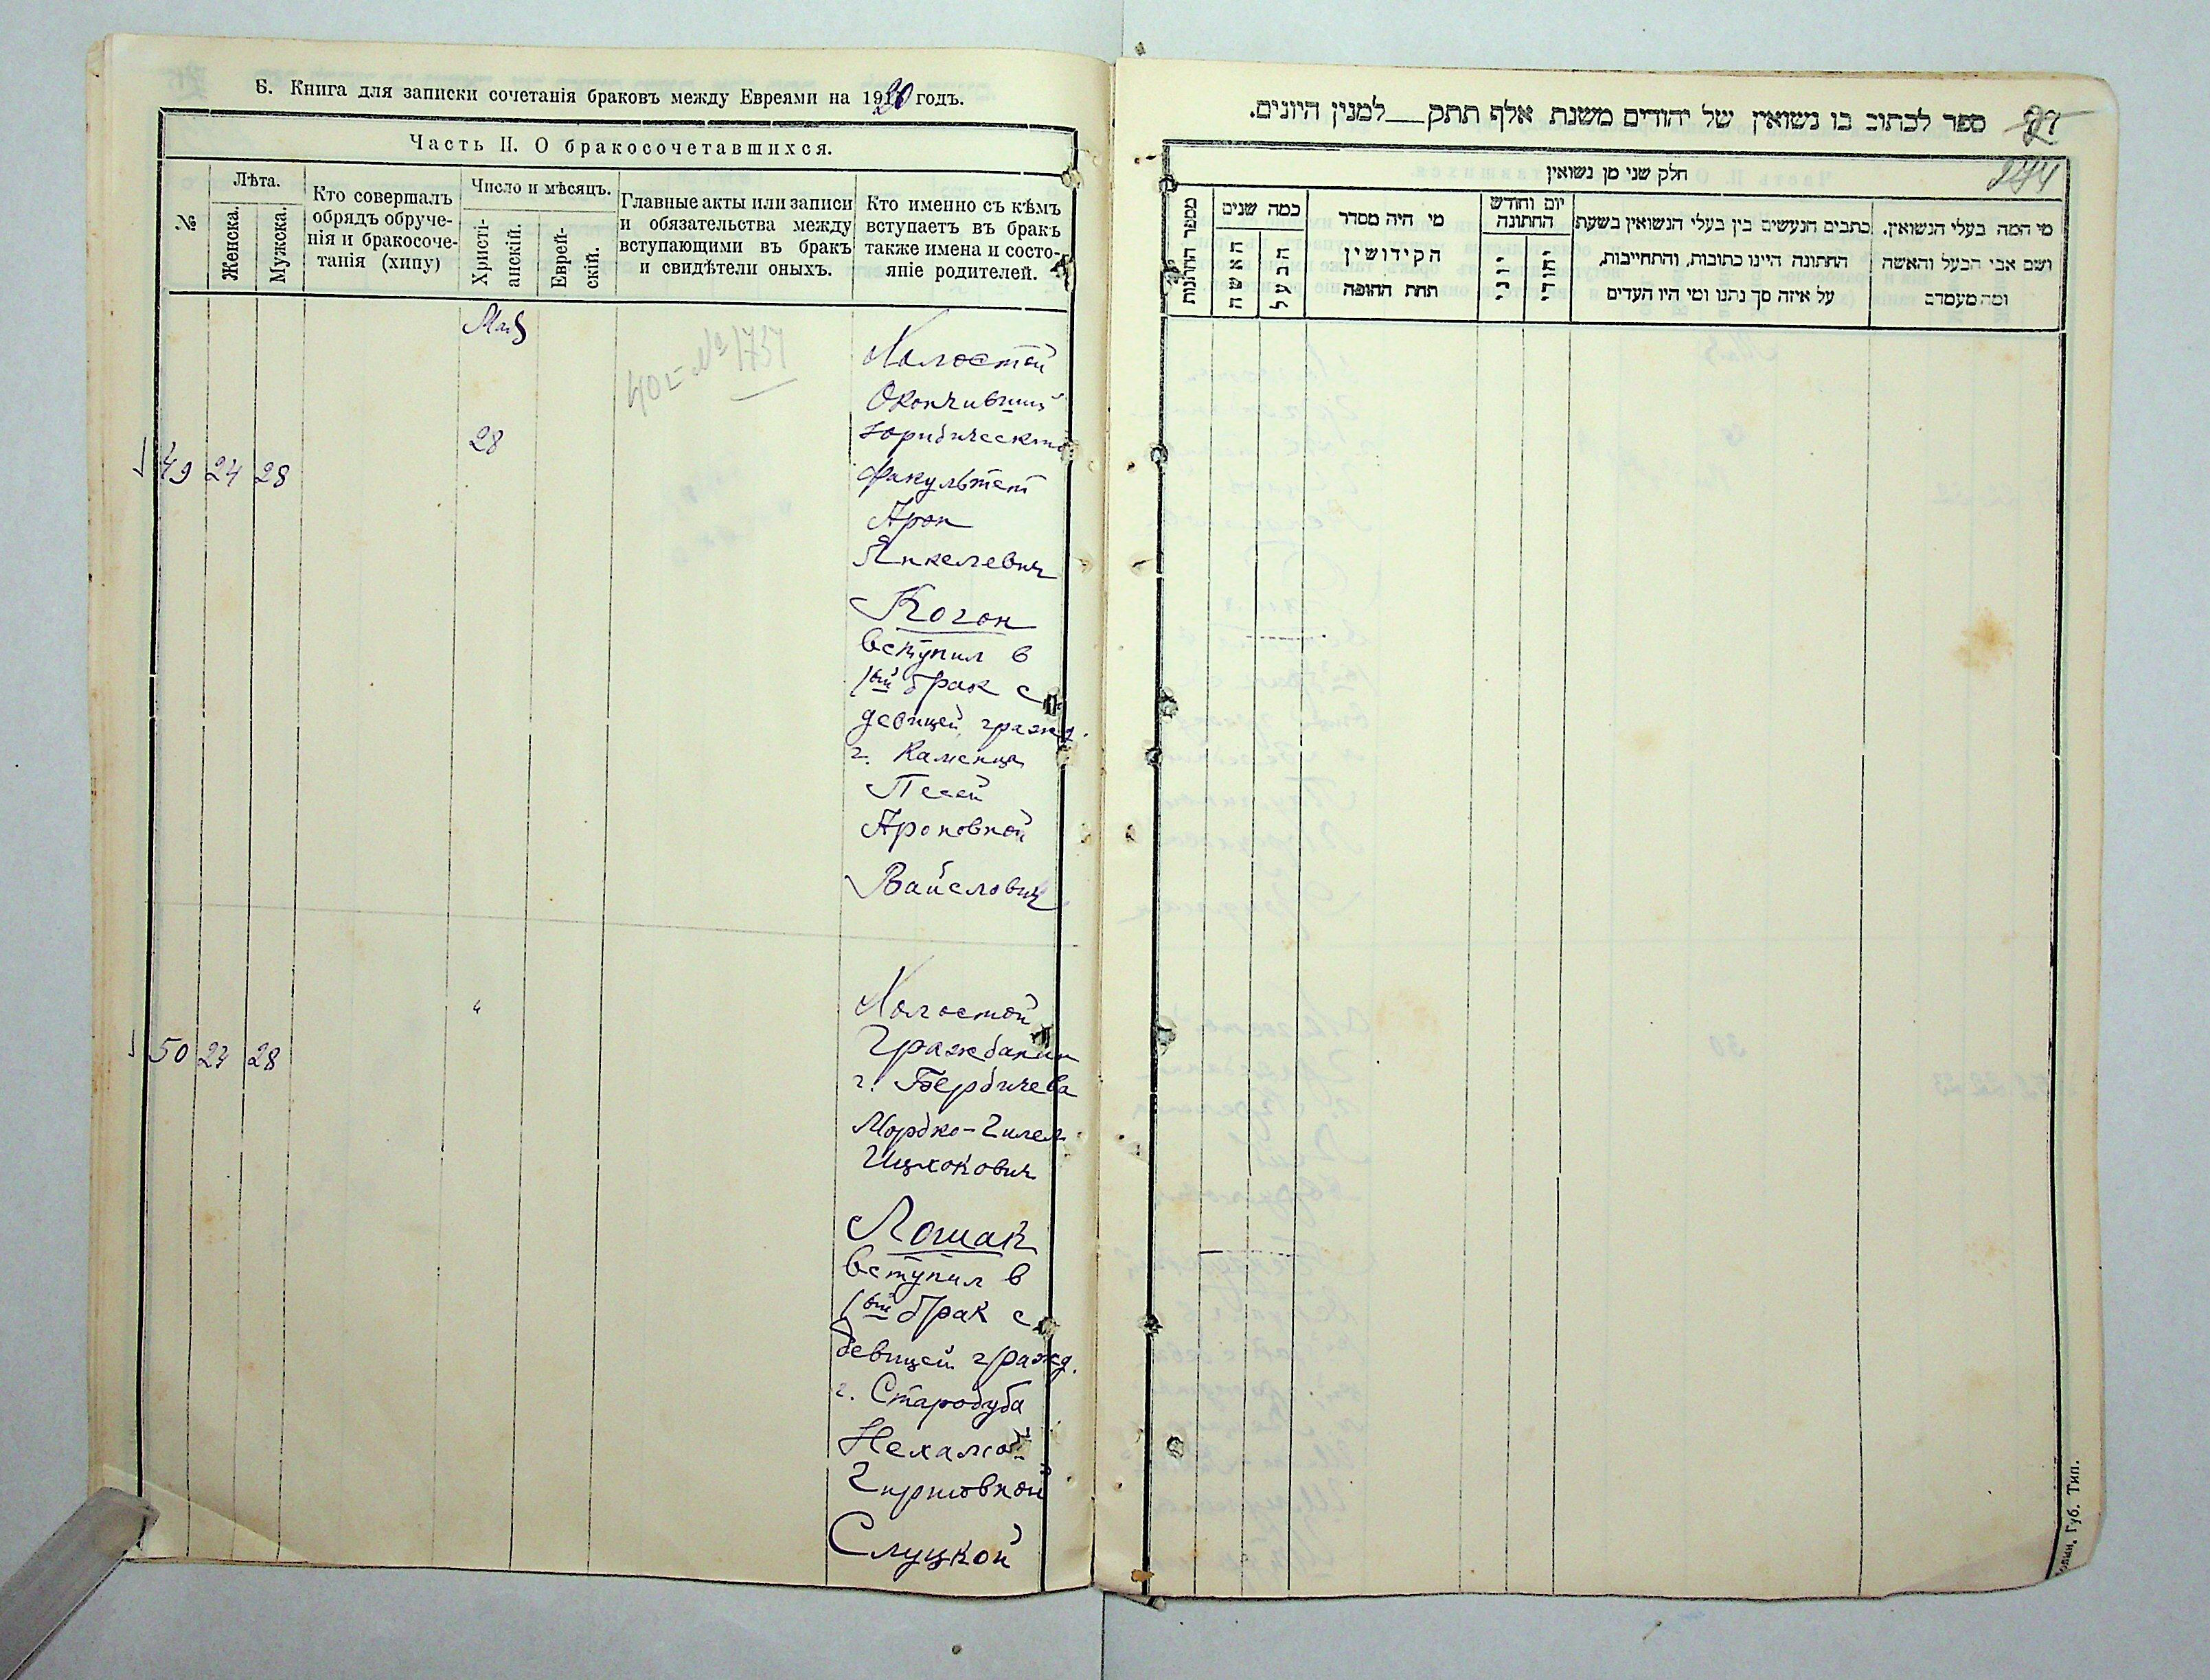 Б. Книга для записки сочетанія браковъ между Евреями на 1920 годъ.
Часть II. О бракосочетавшихся.
№
Лѣта.
Женска.
Мужска.
Кто совершалъ
обрядъ обруче-
нія и бракосоче-
танія (хипу)
Число и мѣсяцъ.
Христі-
анскій.
Еврей-
скій.
Главные акты или записи
и обязательства между
вступающими въ бракъ
и свидѣтели оныхъ.
Кто именно съ кѣмъ
вступаетъ въ бракъ
также имена и состо-
яніе родителей.
Май
№ 1737
49 24 28
28
Холостой
Окончивший
Юридический
факультет
Арон
Янкелевич
Коган
вступил в
1ый брак с
девицей гражд.
г. Каменца
Песей
Ароновной
Вайслович
50 23 28
"
Холостой
Гражданин
г. Бердичева
Мордко-Гилел
Ицхокович
Лошак
вступил в
1ый брак с
девицей гражд.
г. Стародуба
Нехамой
Гиршовной
Слуцкой
ספר לכתוב בו נשואין של יהודים משנת אלף תתק__למנין היונים.
274
חלק שני מן נשואין
מספר החתונות
כמה שנים
האשה
הבעל
מי היה מסדר
הקידושין
תחת החופה
יום וחודש
החתונה
יוני
יהודי
כתבים הנעשים בין בעלי הנשואין בשעת
החתונה היינו כתובות, והתחייבות,
על איזה סך נתנו ומי היו העדים
מי המה בעלי הנשואין.
ושם אבי הבעל והאשה
ומה מעמדם
Губ. Тип.